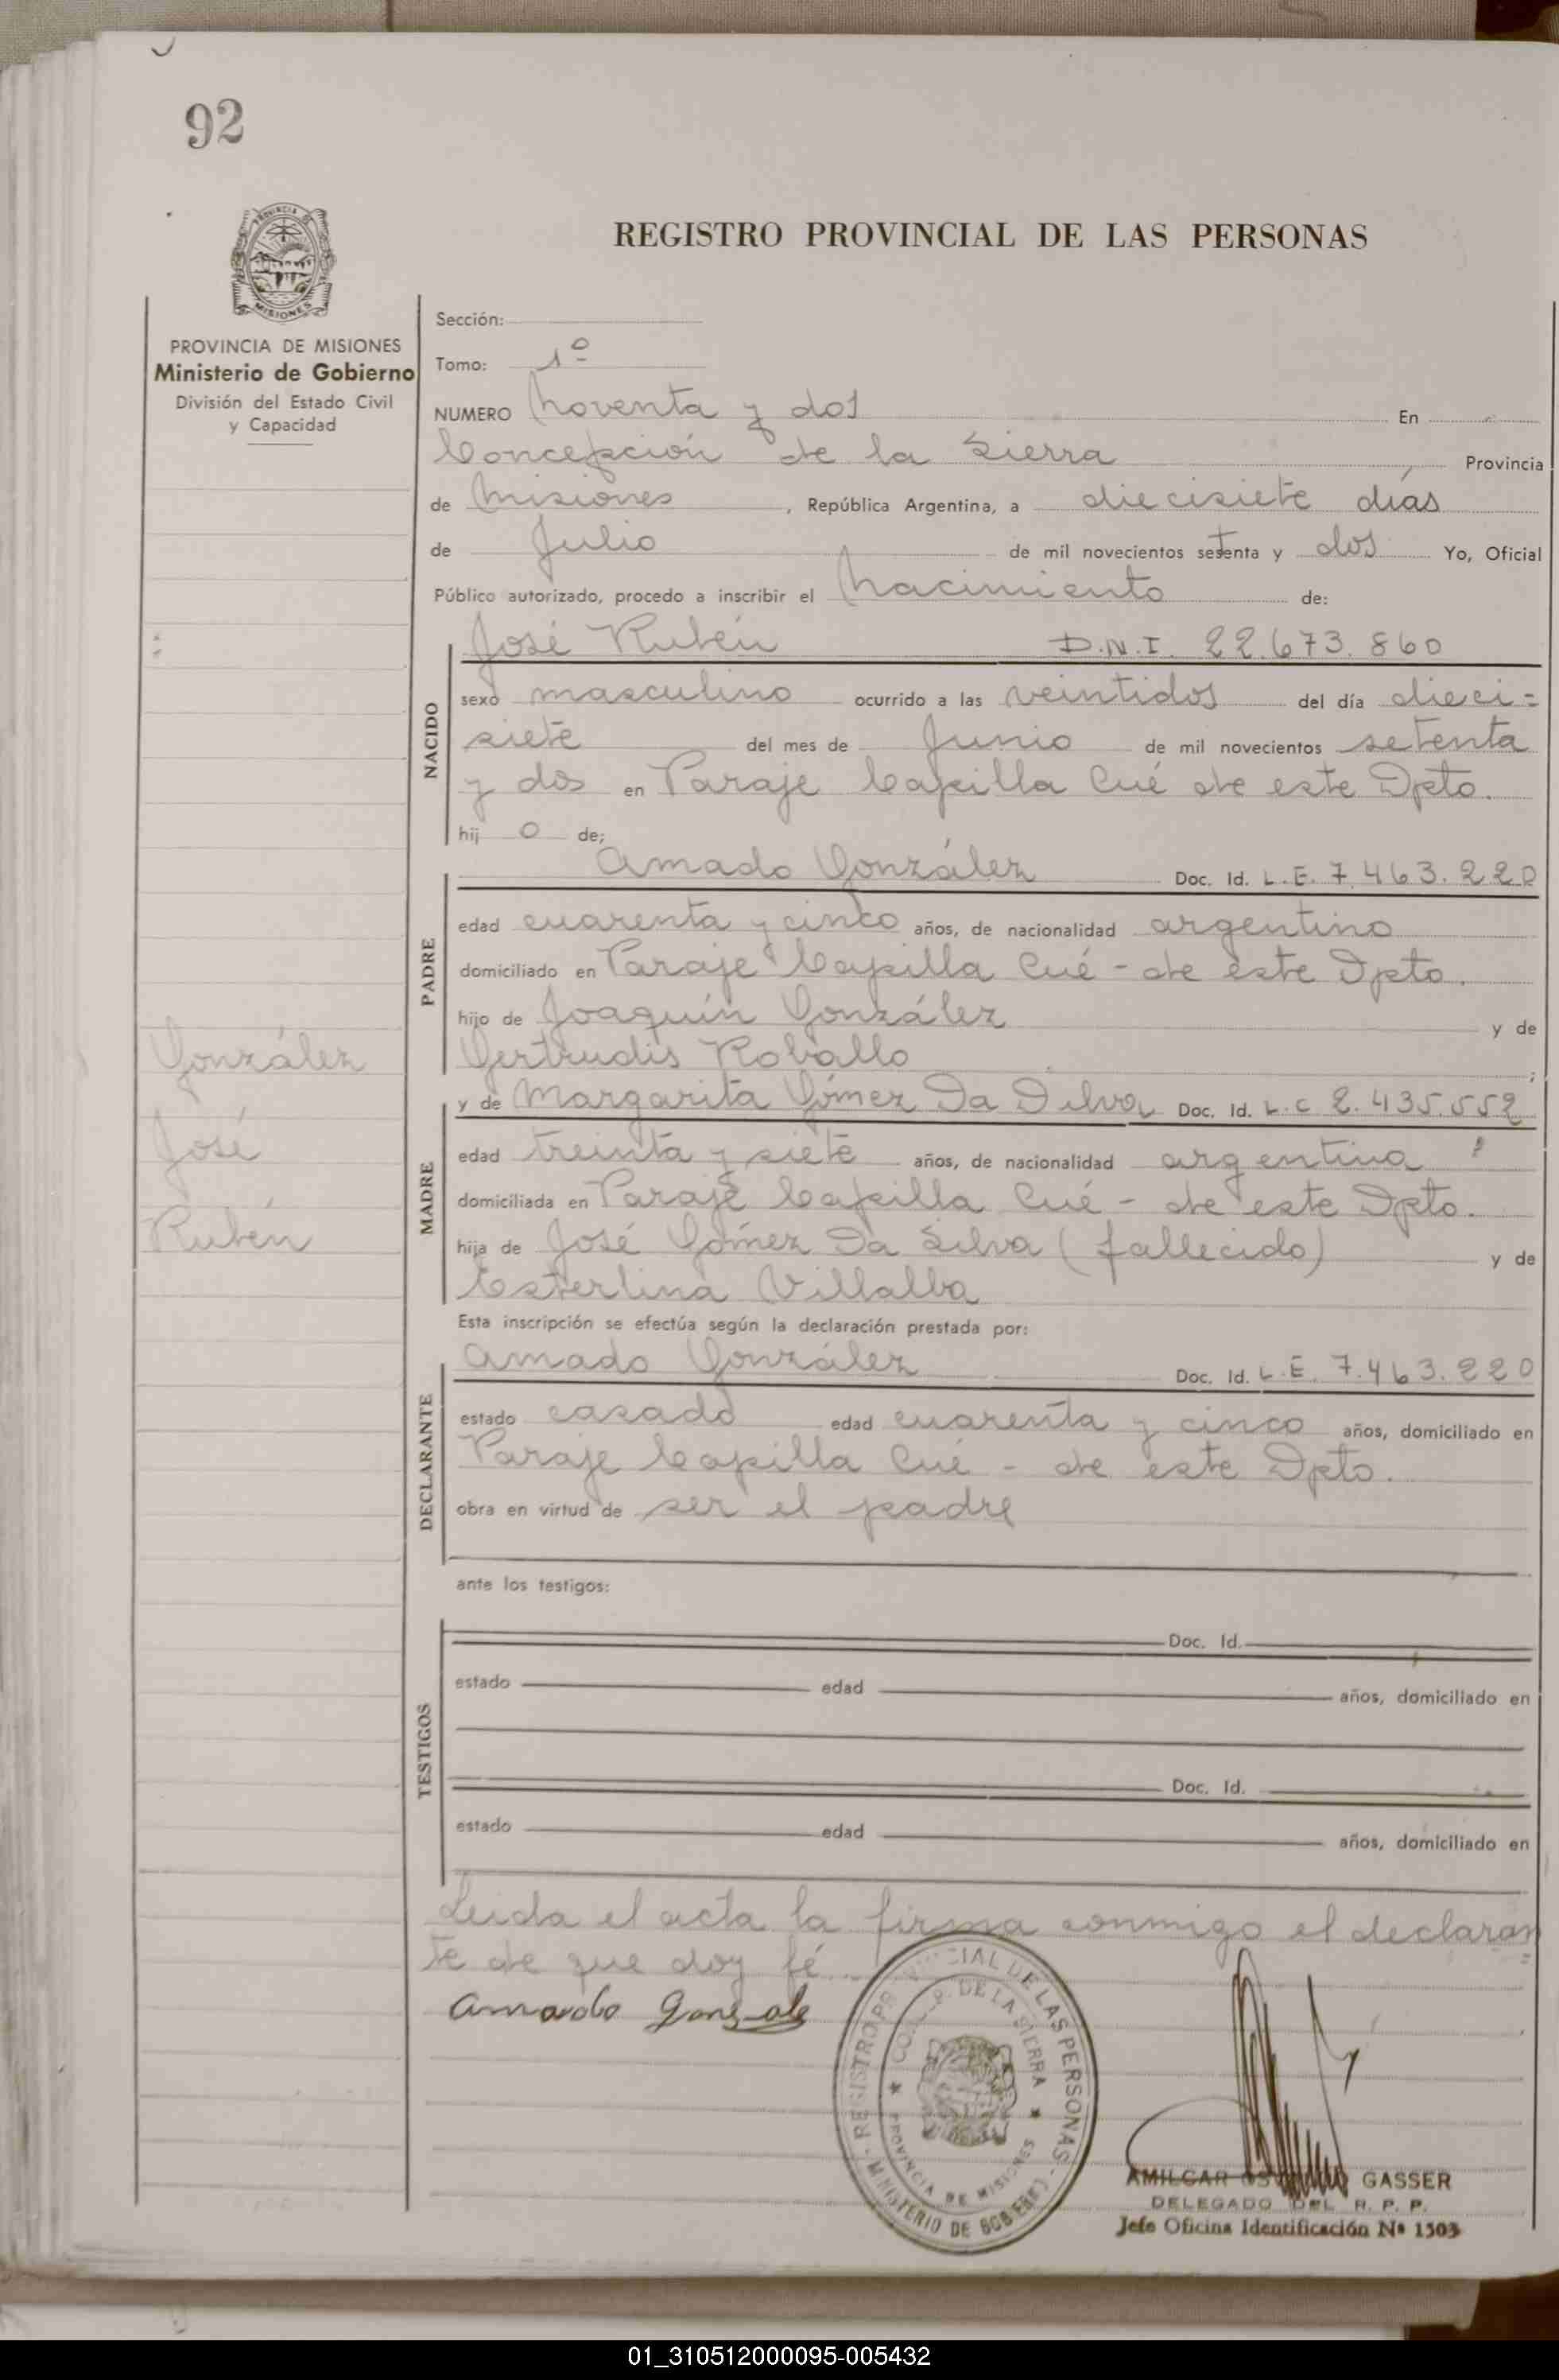 92
REGISTRO PROVINCIAL DE LAS PERSONAS
PROVINCIA DE MISIONES
Ministerio de Gobierno
División del Estado Civil
y Capacidad
González
José
Rubén
Sección:
Tomo: 1º
NUMERO Noventa y dos En
Concepción de la Sierra Provincia
de Misiones, República Argentina, a diecisiete días
de Julio de mil novecientos setenta y dos Yo, Oficial
Público autorizado, procedo a inscribir el Nacimiento de:
NACIDO
José Rubén D.N.I. 22.673.860
sexo masculino ocurrido a las veintidos del día dieci=
siete del mes de Junio de mil novecientos setenta
y dos en Paraje Capilla Cué de este Dpto.
hij o de;
PADRE
Amado González Doc. Id. L.E. 7.463.220
edad cuarenta y cinco años, de nacionalidad argentino
domiciliado en Paraje Capilla Cué - de este Dpto.
hijo de Joaquín González y de
Gertrudis Roballo ;
MADRE
y de Margarita Gómez Da Silva Doc. Id. L.C 2.435.552
edad treinta y siete años, de nacionalidad argentina
domiciliada en Paraje Capilla Cué - de este Dpto.
hija de José Gómez Da Silva (fallecido) y de
Esterlina Villalba
Esta inscripción se efectúa según la declaración prestada por:
DECLARANTE
Amado González Doc. Id. L.E. 7.463.220
estado casado edad cuarenta y cinco años, domiciliado en
Paraje Capilla Cué - de este Dpto.
obra en virtud de ser el padre
ante los testigos:
TESTIGOS
Doc. Id.
estado edad años, domiciliado en
Doc. Id.
estado edad años, domiciliado en
Leida el acta la firma conmigo el declaran
=
te de que doy fé
Amado Gonzale
REGISTRO PROVINCIAL DE LAS PERSONAS - MINISTERIO DE GOBIERNO
DE LA SIERRA
PROVINCIA DE MISIONES
AMILCAR GASSER
DELEGADO DEL R. P. P.
Jefe Oficina Identificación Nº 1503
01_310512000095-005432